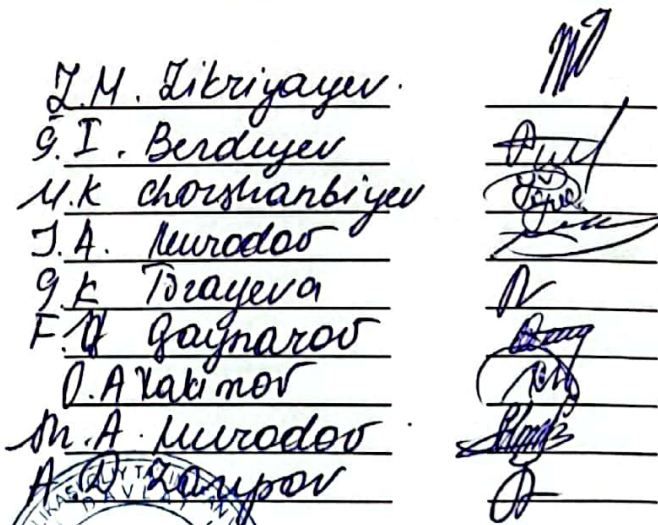 Z.M. Zikriyayev.
G.I. Berdiyev
M.K Chorshanbiyev
J.A. Murodov
G.K Torayeva
F. Gaynarov
O.A Xakimov
Sh.A. Murodov
A. Zaripov
DAVLAT